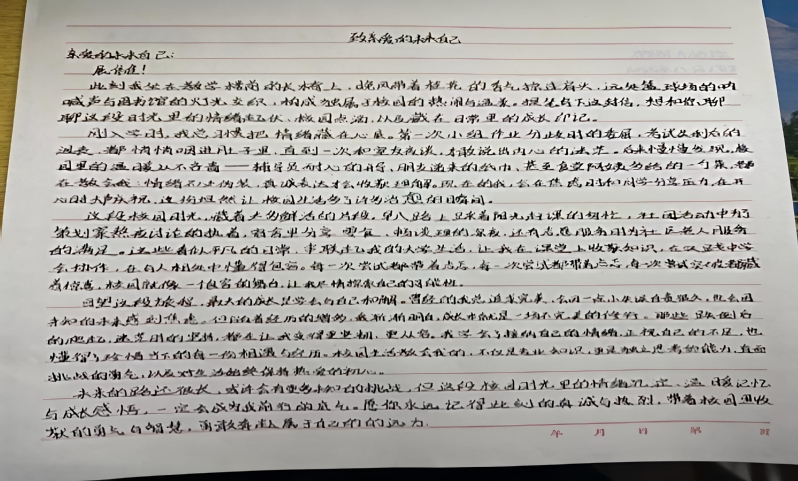 致亲爱的未来自己
亲爱的未来自己:
展信佳!
此刻我坐在教学楼前的长椅上,晚风带着桂花的香气掠过肩头,远处篮球场的呐
喊声与图书馆的灯光交织,构成独属于校园的热闹与温柔。提笔写下这封信,想和你聊
聊这段时光里的情绪起伏、校园点滴,以及藏在日常里的成长印记。
刚入学时,我总习惯把情绪藏在心底。第一次小组作业分歧时的委屈,考试失利后的
沮丧,都悄悄咽进肚子里,直到一次和室友夜谈,才敢说出内心的迷茫。后来慢慢发现,校
园里的温暖从不吝啬——辅导员耐心的开导,朋友递来的纸巾,甚至食堂阿姨多给的一勺菜,都
在教会我:情绪不必伪装,真诚表达才会收获理解。现在的我,会在焦虑时和同学分享压力,在开
心时大声庆祝,这份坦然让校园生活多了许多治愈的瞬间。
这段校园时光,藏着太多鲜活的片段。早八路上卫衣着阳光赶课的匆忙,社团活动中为了
策划案熬夜讨论的执着,宿舍里分享零食、畅谈理想的深夜,还有志愿服务时为社区老人服务
的满足。这些看似平凡的日常,串联起我的大学生活,让我在课堂上收获知识,在实践中学
会协作,在与人相处中懂得包容。每一次尝试都带着忐忑,每一次尝试都带着忐忑,每次尝试突破都藏
着惊喜,校园就像一个包容的舞台,让我尽情探索自己的可能性。
回望这段旅程,最大的成长是学会与自己和解。曾经的我总追求完美,会因一点小失误自责很久,也会因
未知的未来感到焦虑。但随着经历的增多,我渐渐明白,成长本就是一场不完美的修行。那些跌倒后
的爬起,迷茫时的坚持,都在让我变得更坚韧、更从容。我学会了接纳自己的情绪,正视自己的不足,也
懂得了珍惜当下的每一份相遇与经历。校园生活教会我的,不仅是专业知识,更是独立思考的能力,直面
挑战的勇气,以及对生活始终保持热爱的初心。
未来的路还很长,或许会有更多未知的挑战,但这段校园时光里的情绪沉淀、温暖记忆
与成长感悟,一定会成为我前行的底气。愿你永远记得此刻的真诚与热烈,带着校园里收
获的勇气与智慧,勇敢奔赴属于自己的的远方.
年 月 日 第 页